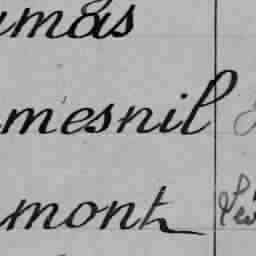 umas
mesnil
mont